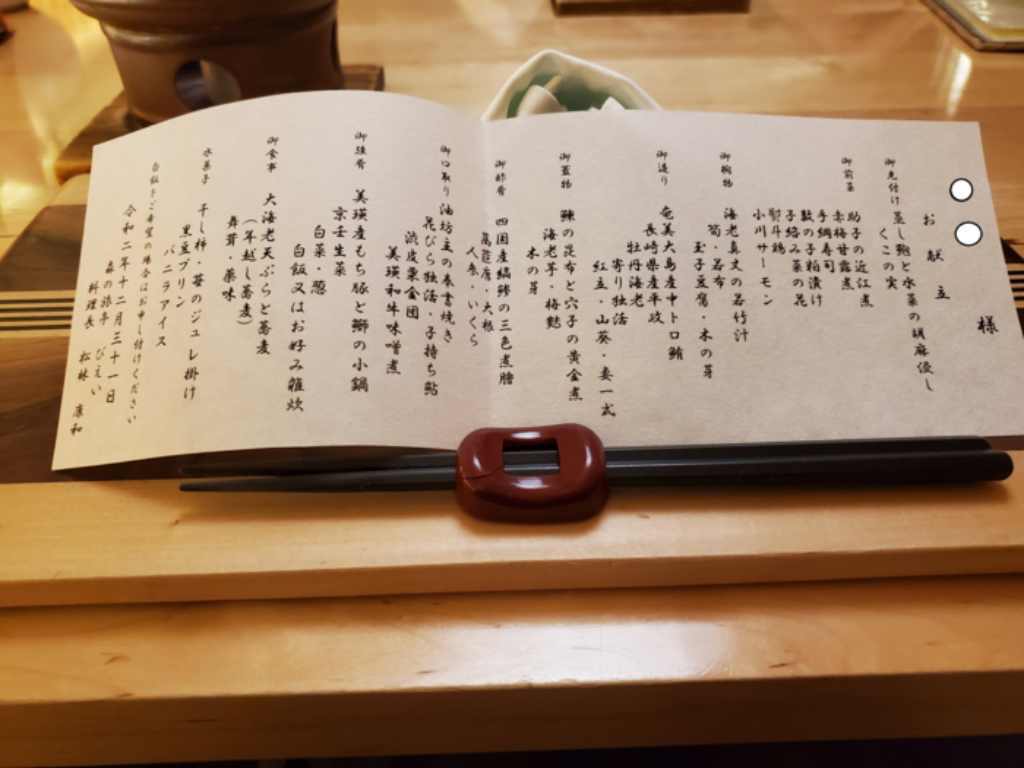 ○○ 様
お献立
御先付け 蒸し鮑と水菜の胡麻浸し
くこの実
御前菜 助子の近江煮
赤梅甘露煮
手綱寿司
数の子粕漬け
子持ち菜の花
熨斗鶏
小川サーモン
御椀物 海老真丈の若竹汁
筍・若布
玉子豆腐・木の芽
御造り 奄美大島産中トロ鮪
長崎県産平政
牡丹海老
寄り独活
紅立・山葵・妻一式
御蓋物 鰊の昆布と穴子の黄金煮
海老芋・梅麩
木の芽
御酢肴 四国産縞鯵の三色煮膾
蕪・大根
人参・いくら
御口取り 油坊主の奉書焼き
花びら独活・子持ち鮎
渋皮栗金団
美瑛和牛味噌煮
御強肴 美瑛産もち豚と鰤の小鍋
京壬生菜
白菜・葱
御食事 白飯又はお好み雑炊
大海老天ぷらと蕎麦
(年越し蕎麦)
舞茸・薬味
水菓子 干し柿・苺のジュレ掛け
黒豆プリン
バニラアイス
白飯をご希望の場合はお申し付けください
令和二年十二月三十一日
森の旅亭 びえい
料理長 松林 康和